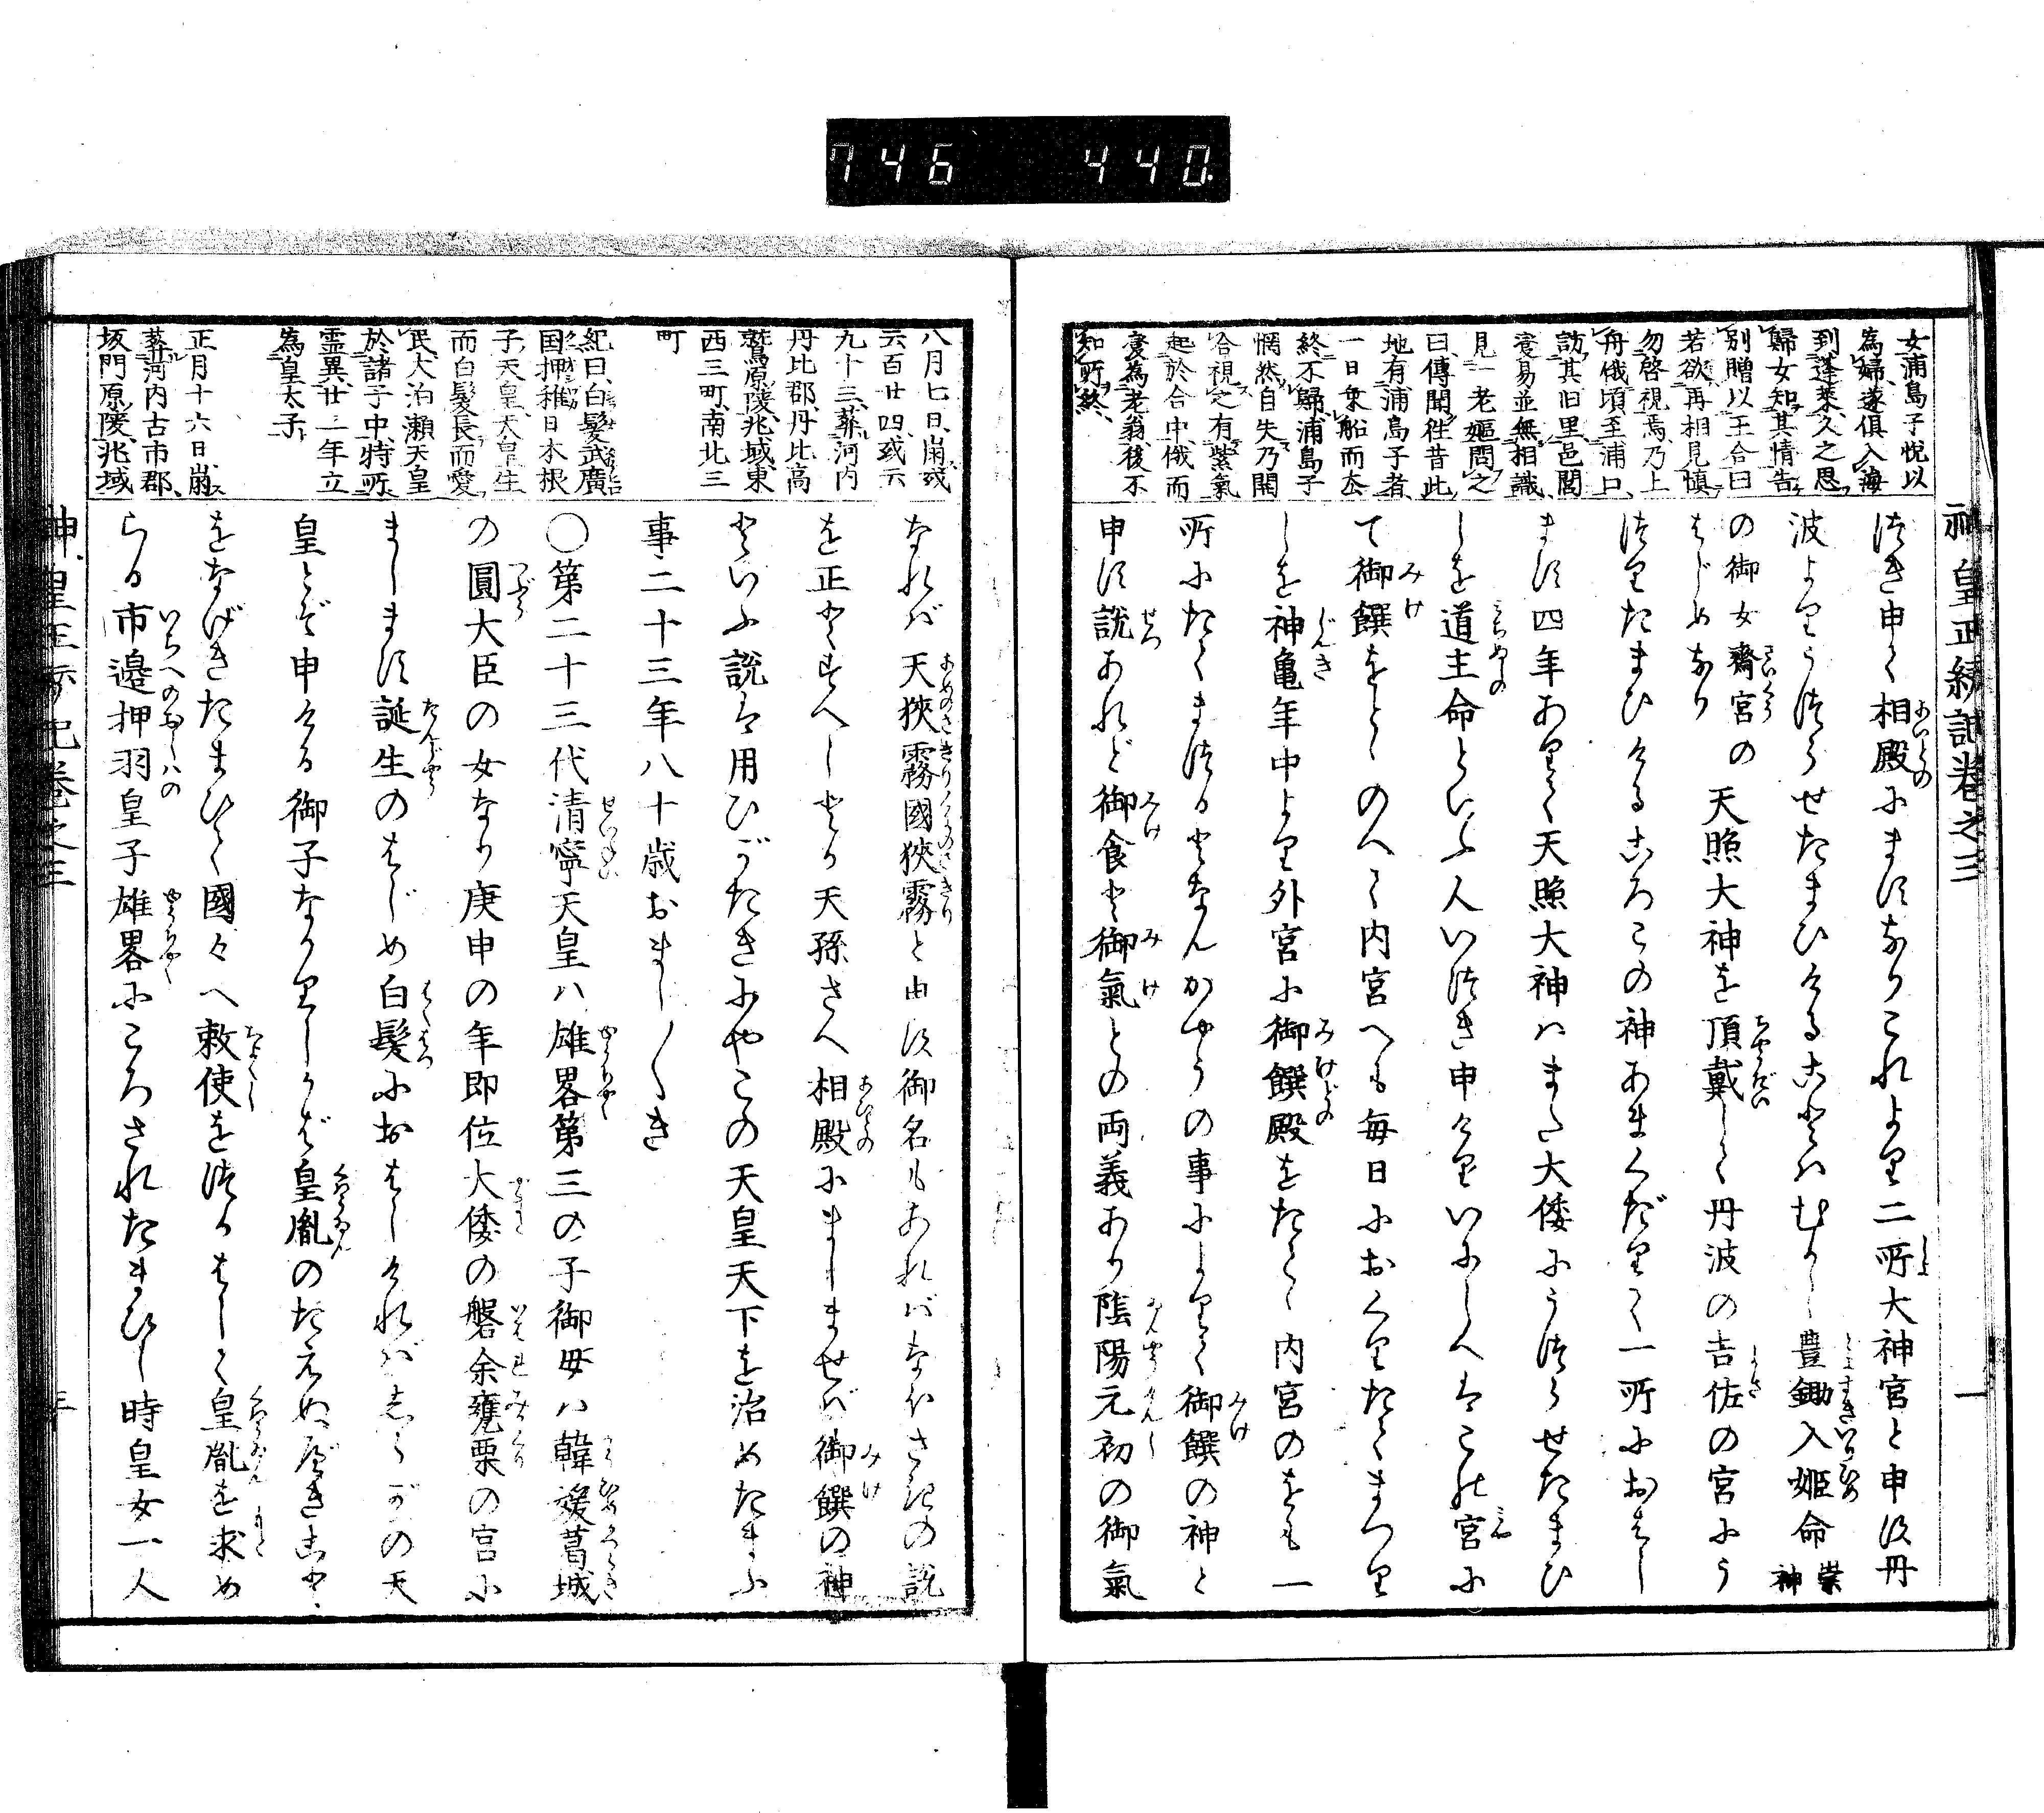 746 440
神皇正統記巻之三
女浦島子悦以
為婦遂俱入海
到蓬莱久之思
歸女知其情告
別贈以玉合曰
若欲再相見慎
勿啓視焉乃上
舟俄頃至浦口
訪其旧里邑閭
変易並無相識
見一老嫗問之
曰傳聞徃昔此
地有浦島子者
一日乗船而去
終不歸浦島子
惘然自失乃開
合視之有紫氣
起於合中俄而
変為老翁後不
知所終
つき申て相殿にまします なりこれより二所大神宮と申す丹
波よりうつらせたまひける事はむかし豊鋤入姫命崇神
の御女齋宮の天照大神を頂戴して丹波の吉佐の宮にう
つりたまひけるころこの神あまくだりて一所におはし
ます四年ありて天照大神ハまた大倭にうつらせたまひ
しを道主命といふ人いつき申けりいにしへはこの宮に
て御饌をとゝのへて内宮へも毎日におくりたてまつり
しを神亀年中より外宮に御饌殿をたてゝ内宮のをも一
所にたてまつるとなんかやうの事によりて御饌の神と
申す説あれど御食と御氣との両義あり陰陽元初の御氣
八月七日崩或
云百廿四或云
九十三葬河内
丹比郡丹比高
鷲原陵兆域東
西三町南北三
町
紀曰白髪武廣
国押稚日本根
子天皇天皇生
而白髪長而愛
民大泊瀬天皇
於諸子中特所
霊異廿二年立
為皇太子
正月十六日崩
葬河内古市郡
坂門原陵兆域
なれバ天狹霧國狹霧と申す御名もあればなほさきの説
を正とすべしとて天孫さへ相殿にましませバ御饌の神
といふ説は用ひがたきにやこの天皇天下を治めたまふ
事二十三年八十歳おましましき
○第二十三代清寧天皇ハ雄畧第三の子御母ハ韓媛葛城
の圓大臣の女なり庚申の年即位大倭の磐余甕栗の宮に
まします誕生のはじめ白髪におはしければしらがの天
皇とぞ申ける御子なかりしかば皇胤のたえぬべき事
をなげきたまひて國々へ敕使をつかはして皇胤を求め
らる市邉押羽皇子雄畧にころされたまひし時皇女一人
神皇正統記巻之三